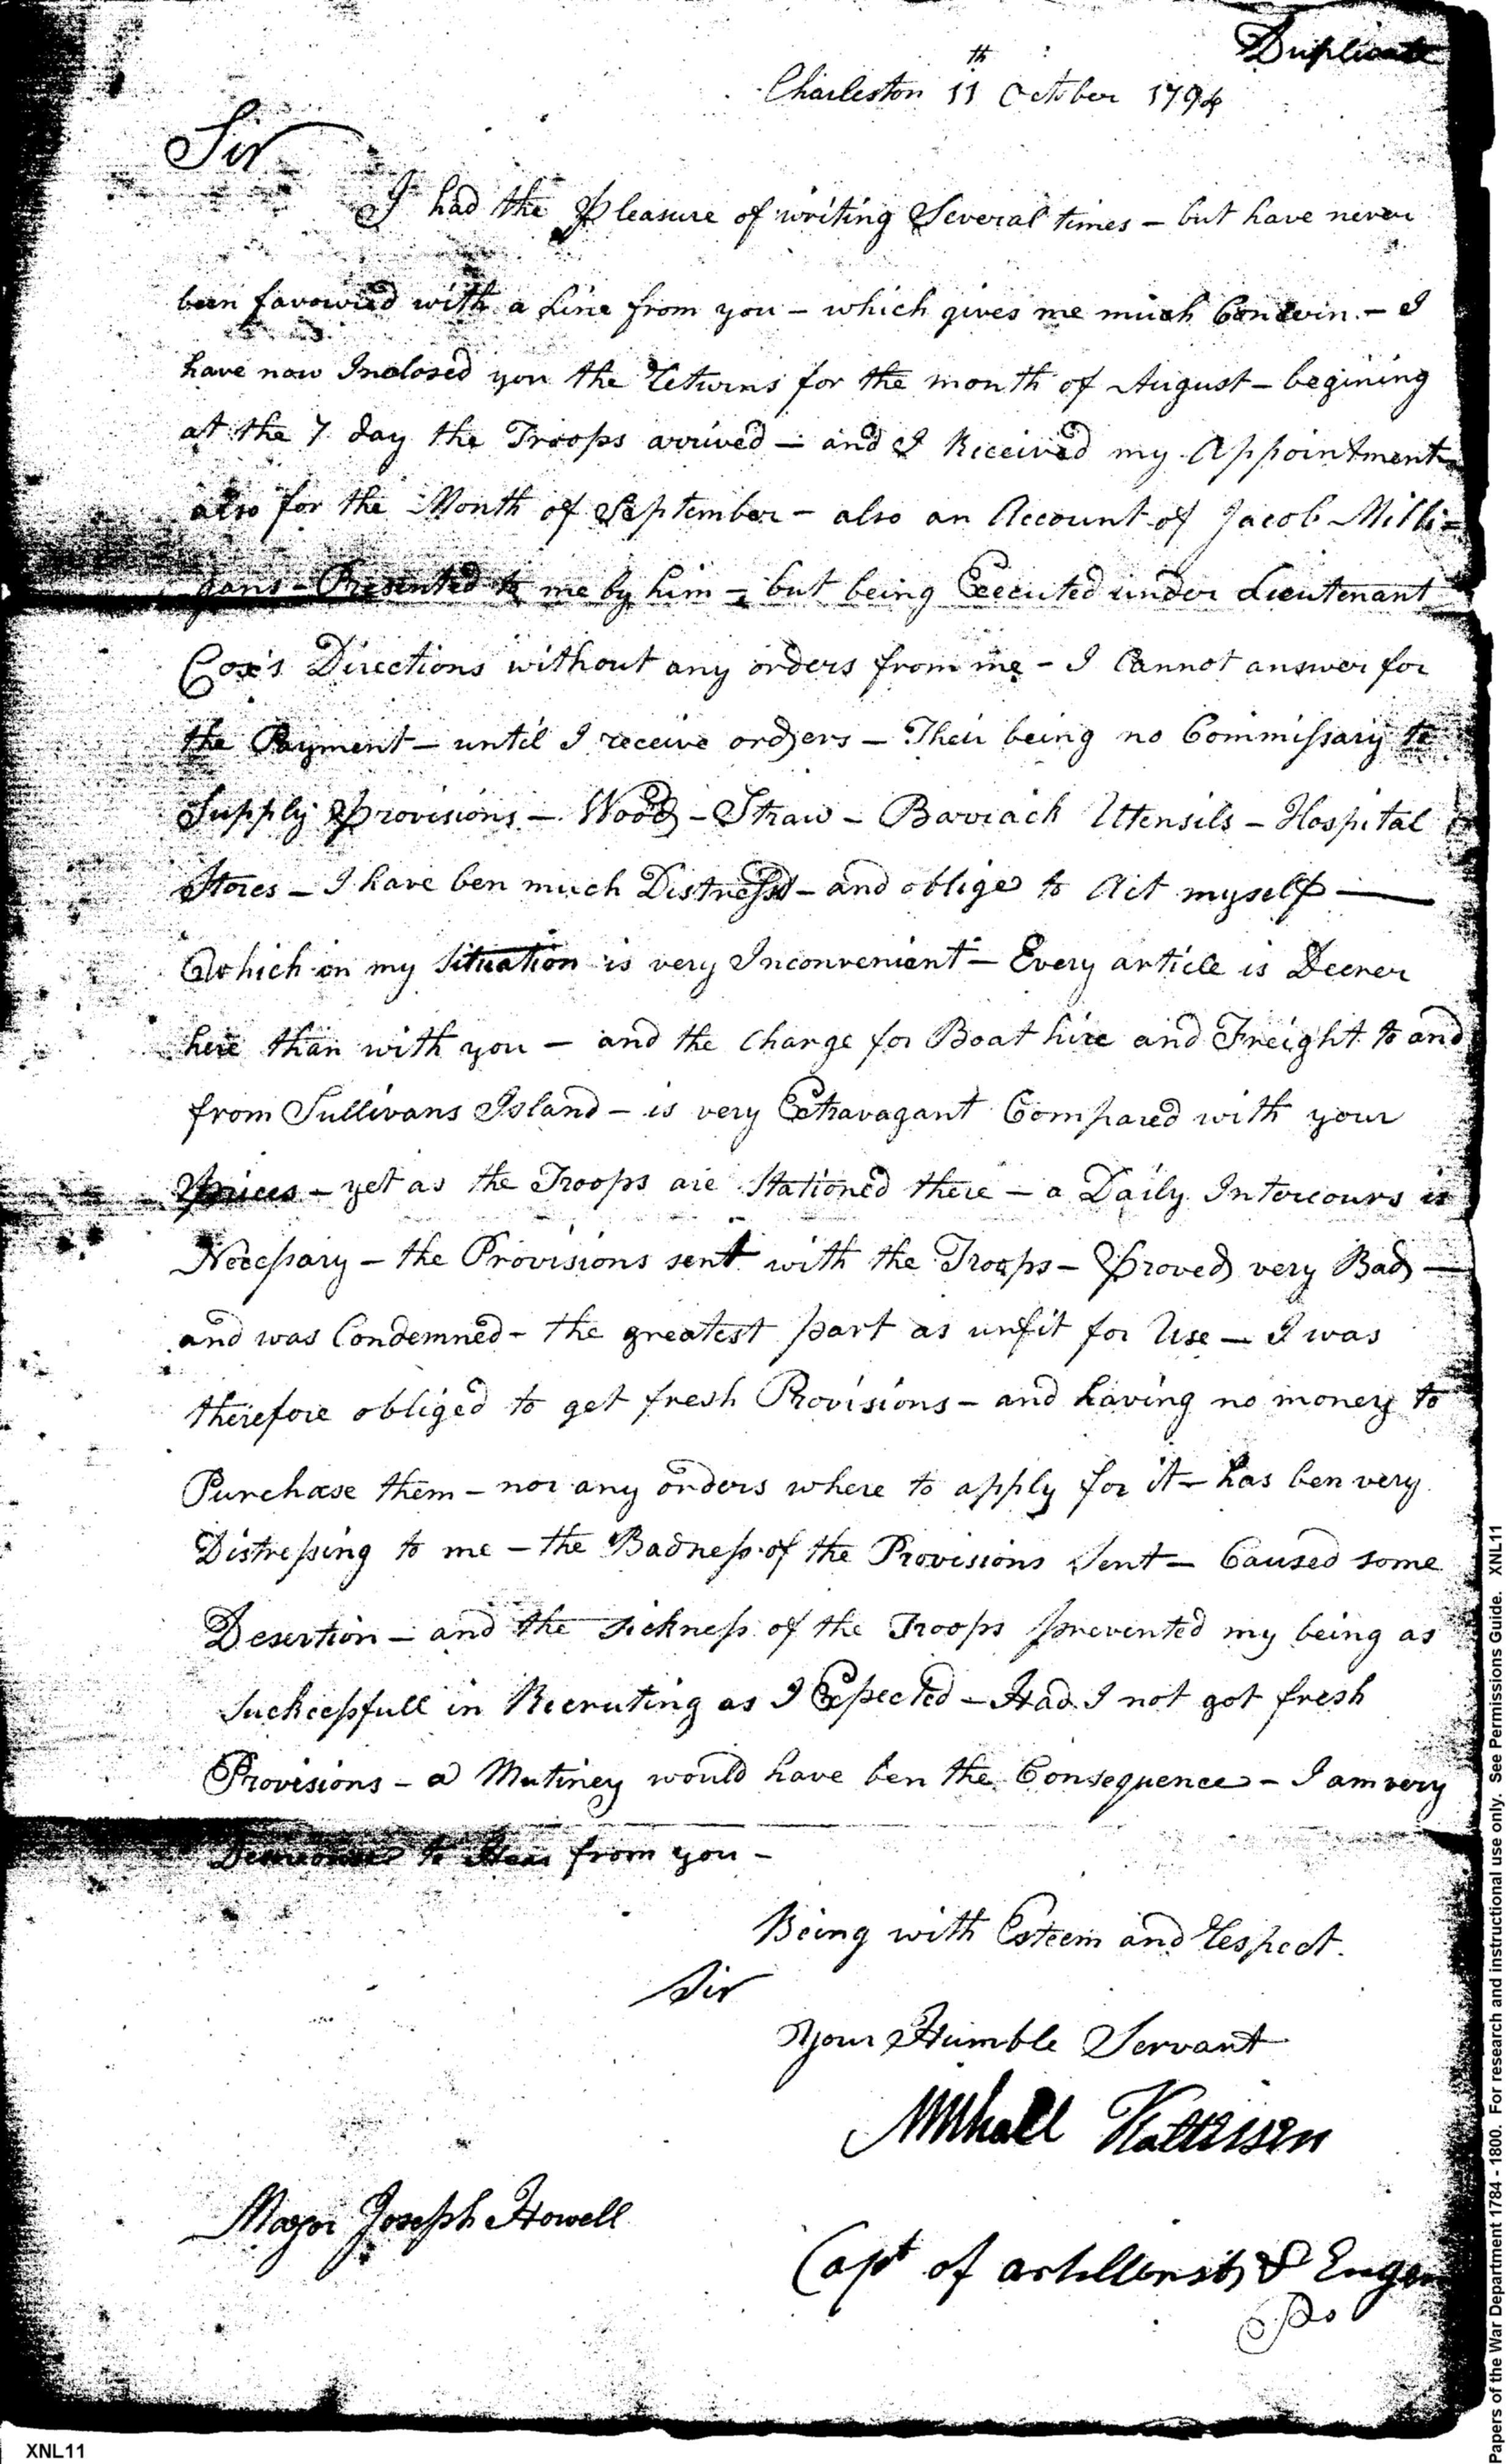 Duplicate
Charleston 11th October 1794
Sir
I had the Pleasure of writing Several times – but have never
been favoured with a Line from you – which gives me much Concern – I
have now Inclosed you the Returns for the month of August – begining
at the 7 day the Troops arrived – and I Received my Appointment
also for the Month of September – also an Account of Jacob Milli=
gans – Presented to me by him – but being Executed under Lieutenant
Cox's Directions without any orders from me – I Cannot answer for
the Payment – until I receive orders – Their being no Commissary to
Supply Provisions – Wood – Straw – Barrack Utensils – Hospital
Stores – I have ben much Distresst – and obliged to Act myself —
Which in my Situation is very Inconvenient – Every article is Deerer
here than with you – and the Charge for Boat hire and Freight to and
from Sullivans Island – is very Extravagant Compared with your
Prices – yet as the Troops are Stationed there – a Daily Intercours is
Necessary – the Provisions sent with the Troops – Proved very Bad —
and was Condemned – the greatest part as unfit for Use – I was
therefore obliged to get fresh Provisions – and having no money to
Purchase them – nor any orders where to apply for it – has ben very
Distressing to me – the Badness of the Provisions Sent – Caused some
Desertion – and the sickness of the Troops prevented my being as
Suckcessfull in Recruting as I Expected – Had I not got fresh
Provisions – a Mutiney would have ben the Consequence – I am very
to Hear from you –
Being with Esteem and Respect
Sir
Your Humble Servant
Michael Kalteisen
Major Joseph Howell
Capt of artillerists & Engen
XNL11
Papers of the War Department 1784 - 1800. For research and instructional use only. See Permissions Guide. XNL11